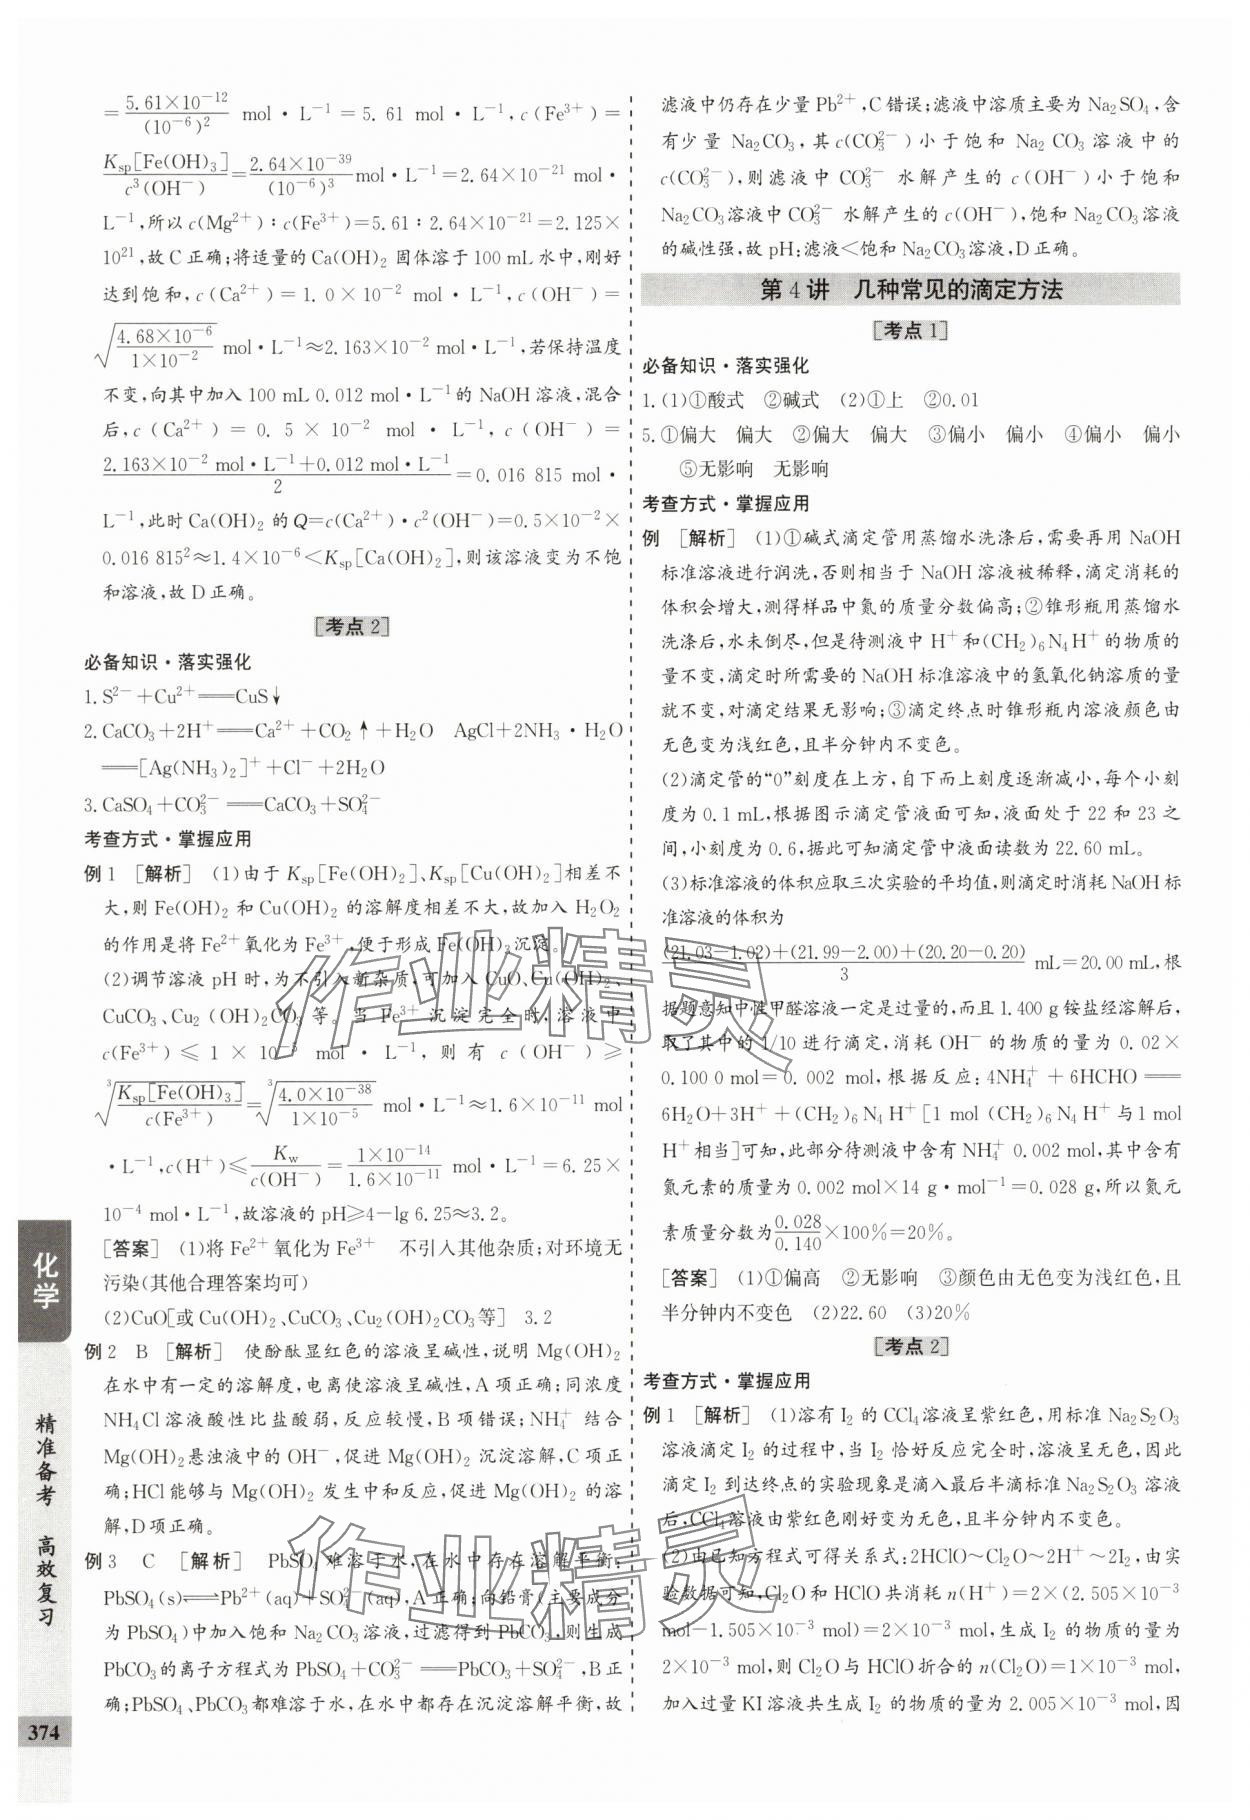 =5.61×10⁻¹²/(10⁻⁶)² mol·L⁻¹=5.61 mol·L⁻¹,c(Fe³⁺)=
Ksp[Fe(OH)₃]/c³(OH⁻)=2.64×10⁻³⁹/(10⁻⁶)³ mol·L⁻¹=2.64×10⁻²¹ mol·
L⁻¹,所以c(Mg²⁺)∶c(Fe³⁺)=5.61∶2.64×10⁻²¹=2.125×
10²¹,故C正确;将适量的Ca(OH)₂固体溶于100 mL水中,刚好
达到饱和,c(Ca²⁺)=1.0×10⁻² mol·L⁻¹,c(OH⁻)=
√(4.68×10⁻⁶/1×10⁻²) mol·L⁻¹≈2.163×10⁻² mol·L⁻¹,若保持温度
不变,向其中加入100 mL 0.012 mol·L⁻¹的NaOH溶液,混合
后,c(Ca²⁺)=0.5×10⁻² mol·L⁻¹,c(OH⁻)=
(2.163×10⁻² mol·L⁻¹+0.012 mol·L⁻¹)/2=0.016 815 mol·
L⁻¹,此时Ca(OH)₂的Q=c(Ca²⁺)·c²(OH⁻)=0.5×10⁻²×
0.016 815²≈1.4×10⁻⁶<Ksp[Ca(OH)₂],则该溶液变为不饱
和溶液,故D正确。
[考点2]
必备知识·落实强化
1.S²⁻+Cu²⁺══CuS↓
2.CaCO₃+2H⁺══Ca²⁺+CO₂↑+H₂O AgCl+2NH₃·H₂O
══[Ag(NH₃)₂]⁺+Cl⁻+2H₂O
3.CaSO₄+CO₃²⁻══CaCO₃+SO₄²⁻
考查方式·掌握应用
例1 [解析] (1)由于Ksp[Fe(OH)₂]、Ksp[Cu(OH)₂]相差不
大,则Fe(OH)₂和Cu(OH)₂的溶解度相差不大,故加入H₂O₂
的作用是将Fe²⁺氧化为Fe³⁺,便于形成Fe(OH)₃沉淀。
(2)调节溶液pH时,为不引入新杂质,可加入CuO、Cu(OH)₂、
CuCO₃、Cu₂(OH)₂CO₃等。当Fe³⁺沉淀完全时,溶液中
c(Fe³⁺)≤1×10⁻⁵ mol·L⁻¹,则有c(OH⁻)≥
∛(Ksp[Fe(OH)₃]/c(Fe³⁺))=∛(4.0×10⁻³⁸/1×10⁻⁵) mol·L⁻¹≈1.6×10⁻¹¹ mol
·L⁻¹,c(H⁺)≤Kw/c(OH⁻)=1×10⁻¹⁴/1.6×10⁻¹¹ mol·L⁻¹=6.25×
10⁻⁴ mol·L⁻¹,故溶液的pH≥4-lg 6.25≈3.2。
[答案] (1)将Fe²⁺氧化为Fe³⁺ 不引入其他杂质;对环境无
污染(其他合理答案均可)
(2)CuO[或Cu(OH)₂、CuCO₃、Cu₂(OH)₂CO₃等] 3.2
例2 B [解析] 使酚酞显红色的溶液呈碱性,说明Mg(OH)₂
在水中有一定的溶解度,电离使溶液呈碱性,A项正确;同浓度
NH₄Cl溶液酸性比盐酸弱,反应较慢,B项错误;NH₄⁺结合
Mg(OH)₂悬浊液中的OH⁻,促进Mg(OH)₂沉淀溶解,C项正
确;HCl能够与Mg(OH)₂发生中和反应,促进Mg(OH)₂的溶
解,D项正确。
例3 C [解析] PbSO₄难溶于水,在水中存在溶解平衡:
PbSO₄(s)⇌Pb²⁺(aq)+SO₄²⁻(aq),A正确;向铅膏(主要成分
为PbSO₄)中加入饱和Na₂CO₃溶液,过滤得到PbCO₃,则生成
PbCO₃的离子方程式为PbSO₄+CO₃²⁻══PbCO₃+SO₄²⁻,B正
确;PbSO₄、PbCO₃都难溶于水,在水中都存在沉淀溶解平衡,故
滤液中仍存在少量Pb²⁺,C错误;滤液中溶质主要为Na₂SO₄,含
有少量Na₂CO₃,其c(CO₃²⁻)小于饱和Na₂CO₃溶液中的
c(CO₃²⁻),则滤液中CO₃²⁻水解产生的c(OH⁻)小于饱和
Na₂CO₃溶液中CO₃²⁻水解产生的c(OH⁻),饱和Na₂CO₃溶液
的碱性强,故pH:滤液<饱和Na₂CO₃溶液,D正确。
第4讲 几种常见的滴定方法
[考点1]
必备知识·落实强化
1.(1)①酸式 ②碱式 (2)①上 ②0.01
5.①偏大 偏大 ②偏大 偏大 ③偏小 偏小 ④偏小 偏小
⑤无影响 无影响
考查方式·掌握应用
例 [解析] (1)①碱式滴定管用蒸馏水洗涤后,需要再用NaOH
标准溶液进行润洗,否则相当于NaOH溶液被稀释,滴定消耗的
体积会增大,测得样品中氮的质量分数偏高;②锥形瓶用蒸馏水
洗涤后,水未倒尽,但是待测液中H⁺和(CH₂)₆N₄H⁺的物质的
量不变,滴定时所需要的NaOH标准溶液中的氢氧化钠溶质的量
就不变,对滴定结果无影响;③滴定终点时锥形瓶内溶液颜色由
无色变为浅红色,且半分钟内不变色。
(2)滴定管的“0”刻度在上方,自下而上刻度逐渐减小,每个小刻
度为0.1 mL,根据图示滴定管液面可知,液面处于22和23之
间,小刻度为0.6,据此可知滴定管中液面读数为22.60 mL。
(3)标准溶液的体积应取三次实验的平均值,则滴定时消耗NaOH标
准溶液的体积为
((21.03-1.02)+(21.99-2.00)+(20.20-0.20))/3 mL=20.00 mL,根
据题意知中性甲醛溶液一定是过量的,而且1.400 g铵盐经溶解后,
取了其中的1/10进行滴定,消耗OH⁻的物质的量为0.02×
0.100 0 mol=0.002 mol,根据反应:4NH₄⁺+6HCHO══
6H₂O+3H⁺+(CH₂)₆N₄H⁺[1 mol (CH₂)₆N₄H⁺与1 mol
H⁺相当]可知,此部分待测液中含有NH₄⁺ 0.002 mol,则含有
氮元素的质量为0.002 mol×14 g·mol⁻¹=0.028 g,所以氮元
素质量分数为0.028/0.140×100%=20%。
[答案] (1)①偏高 ②无影响 ③颜色由无色变为浅红色,且
半分钟内不变色 (2)22.60 (3)20%
[考点2]
考查方式·掌握应用
例1 [解析] (1)溶有I₂的CCl₄溶液呈紫红色,用标准Na₂S₂O₃
溶液滴定I₂的过程中,当I₂恰好反应完全时,溶液呈无色,因此
滴定I₂到达终点的实验现象是滴入最后半滴标准Na₂S₂O₃溶液
后,CCl₄溶液由紫红色刚好变为无色,且半分钟内不变色。
(2)由已知方程式可得关系式:2HClO~Cl₂O~2H⁺~2I₂,由实
验数据可知,Cl₂O和HClO共消耗n(H⁺)=2×(2.505×10⁻³
mol-1.505×10⁻³ mol)=2×10⁻³ mol,生成I₂的物质的量为
2×10⁻³ mol,则Cl₂O与HClO折合的n(Cl₂O)=1×10⁻³ mol,
加入过量KI溶液共生成I₂的物质的量为2.005×10⁻³ mol,因
化学
精准备考 高效复习
374
作业精灵
作业精灵